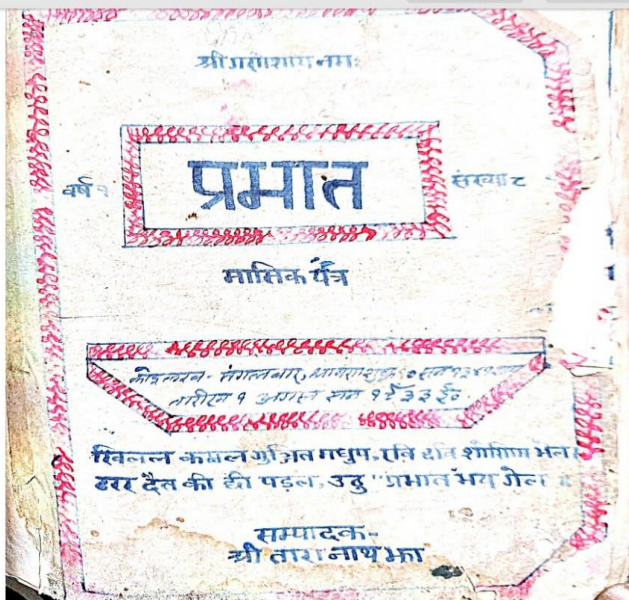 श्री गणेशाय नमः
वर्ष १
प्रभात
संख्या ८
मासिक पत्र
कोइलख - मंगलवार, श्रावणशुक्ल १० सन १३४१ साल
तारीख १ अगस्त सन १९३३ ई०
खिलल कमल गुञ्जित मधुप, रवि छवि शोणिम भेल।
टरर दैत की छी पड़ल, उठु "प्रभात भय गेल॥
सम्पादक-
श्री तारानाथ झा